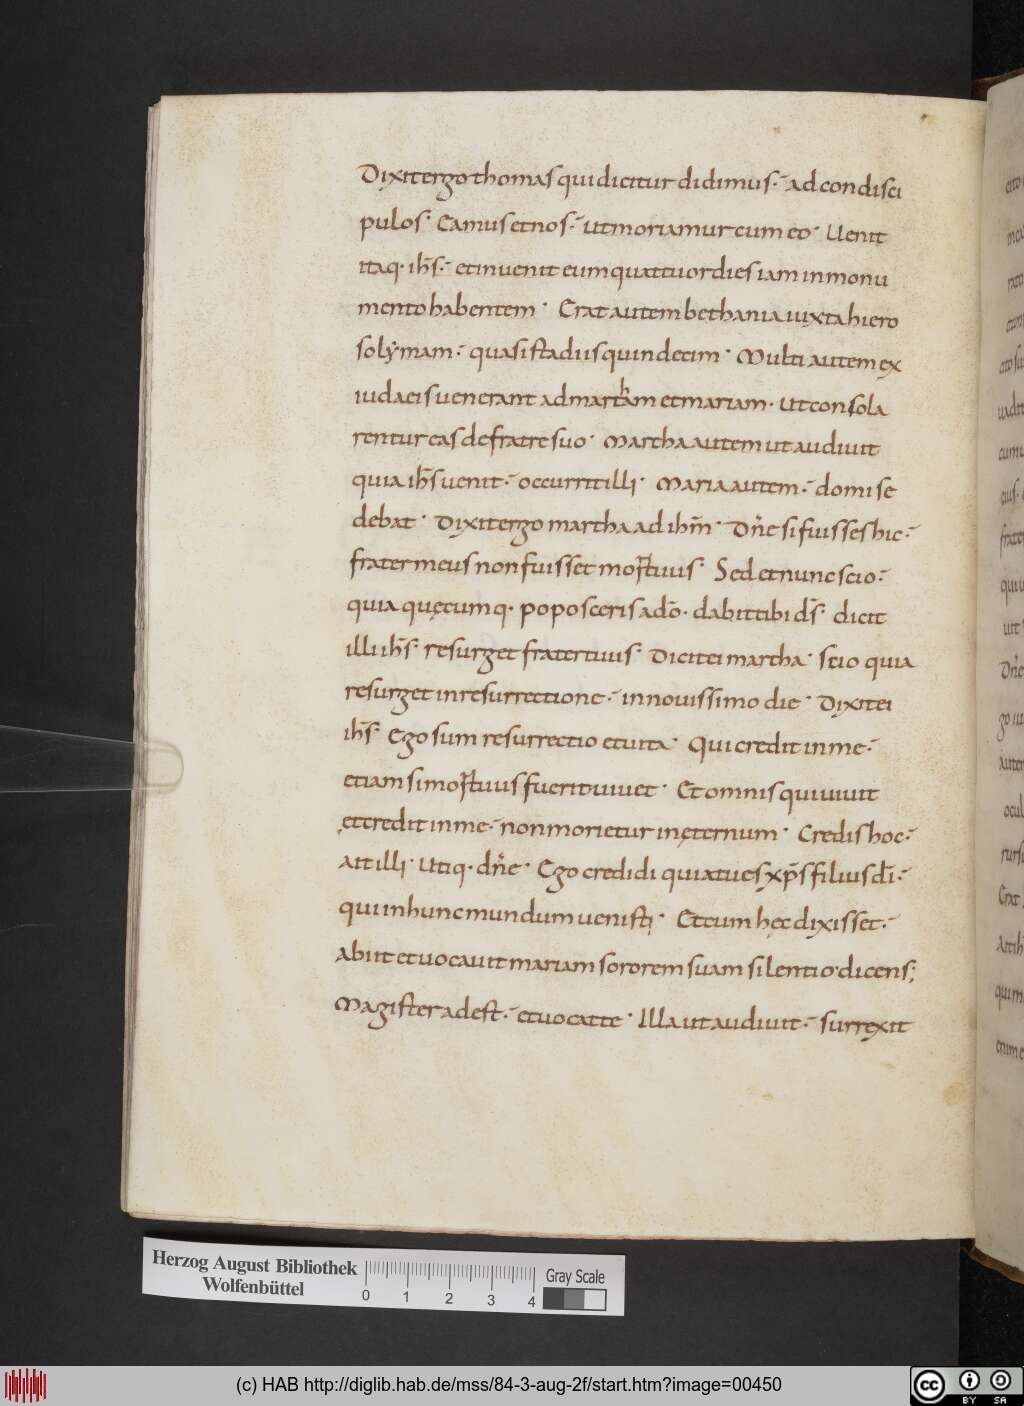 Dixit ergo thomas qui dicitur didimus · ad condisci
pulos · Eamus et nos · ut moriamur cum eo · Uenit
itaq· ih̄s · et inuenit eum quattuor dies iam in monu
mento habentem · Erat autem bethania iuxta hiero
solẏmam · quasi stadiis quindecim · Multi autem ex
iudaeis uenerant ad martham et mariam · Ut consola
rentur eas de fratre suo · Martha autem ut audiuit
quia ih̄s uenit · occurrit illi · Maria autem · domi se
debat · Dixit ergo martha ad ihm̄ · Dn̄e si fuisses hic ·
frater meus non fuisset mortuus · Sed et nunc scio ·
quia quęcumq· poposceris a dō · dabit tibi d̄s · dicit
illi ih̄s · resurget frater tuus · Dicit ei martha · scio quia
resurget in resurrectione · in nouissimo die · Dixit ei
ih̄s · Ego sum resurrectio et uita · Qui credit in me ·
etiam si mortuus fuerit uiuet · Et omnis qui uiuit
et credit in me · non morietur in ęternum · Credis hoc ·
Ait illi · Utiq· dn̄e · Ego credidi quia tu es xp̄s filius dī ·
qui in hunc mundum uenisti · Et cum hęc dixisset ·
abiit et uocauit mariam sororem suam silentio · dicens ;
Magister adest · et uocat te · Illa ut audiuit · surrexit
Herzog August Bibliothek
Wolfenbüttel
Gray Scale
0 1 2 3 4
(c) HAB http://diglib.hab.de/mss/84-3-aug-2f/start.htm?image=00450
cc BY SA